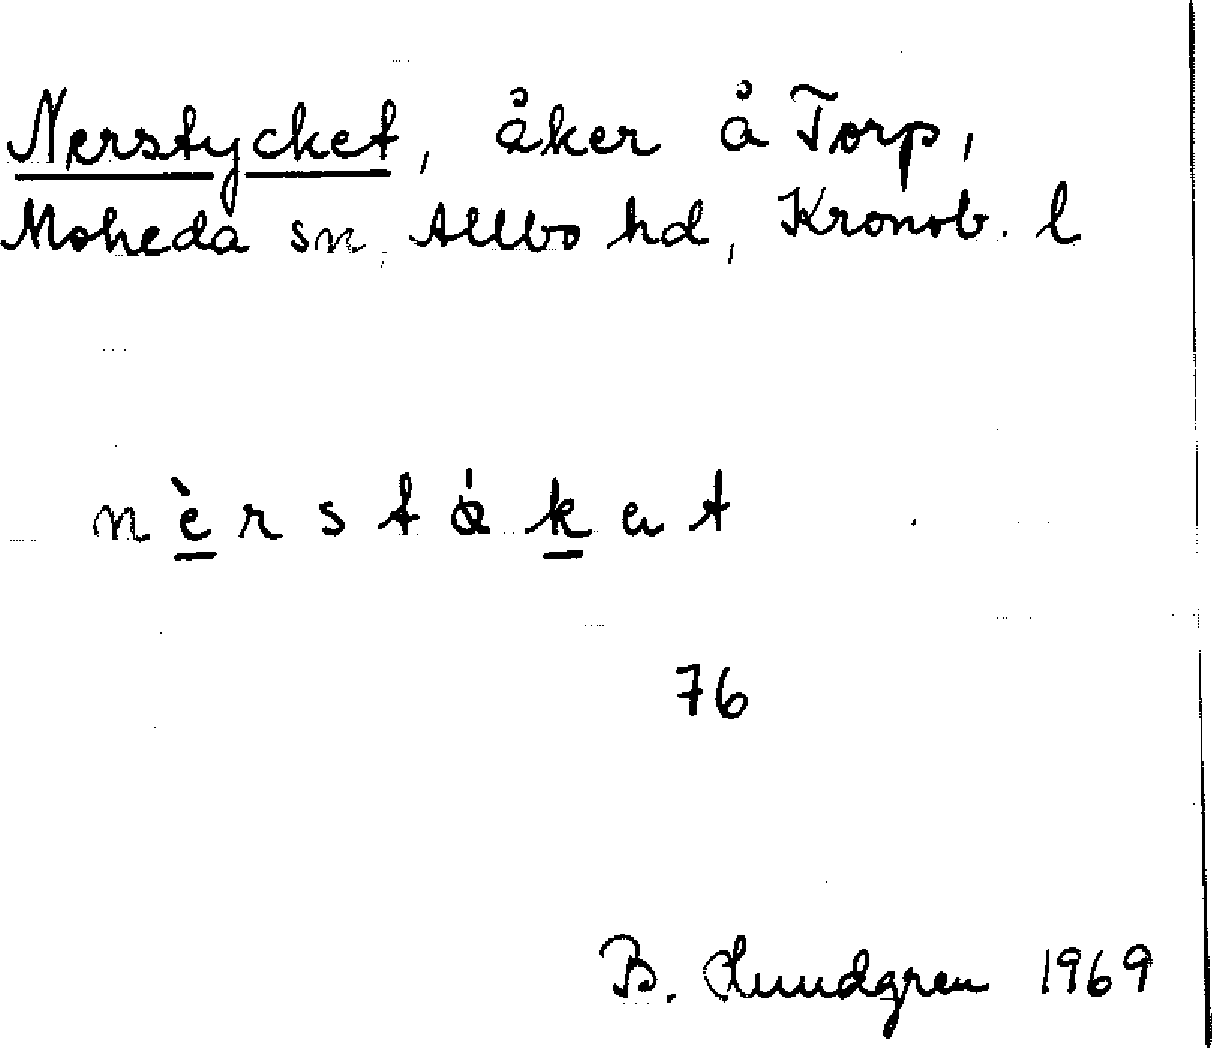 Nerstycket, åker å Torp,
Moheda sn, Allbo hd, Kronob. l
76
B. Lundgren 1969